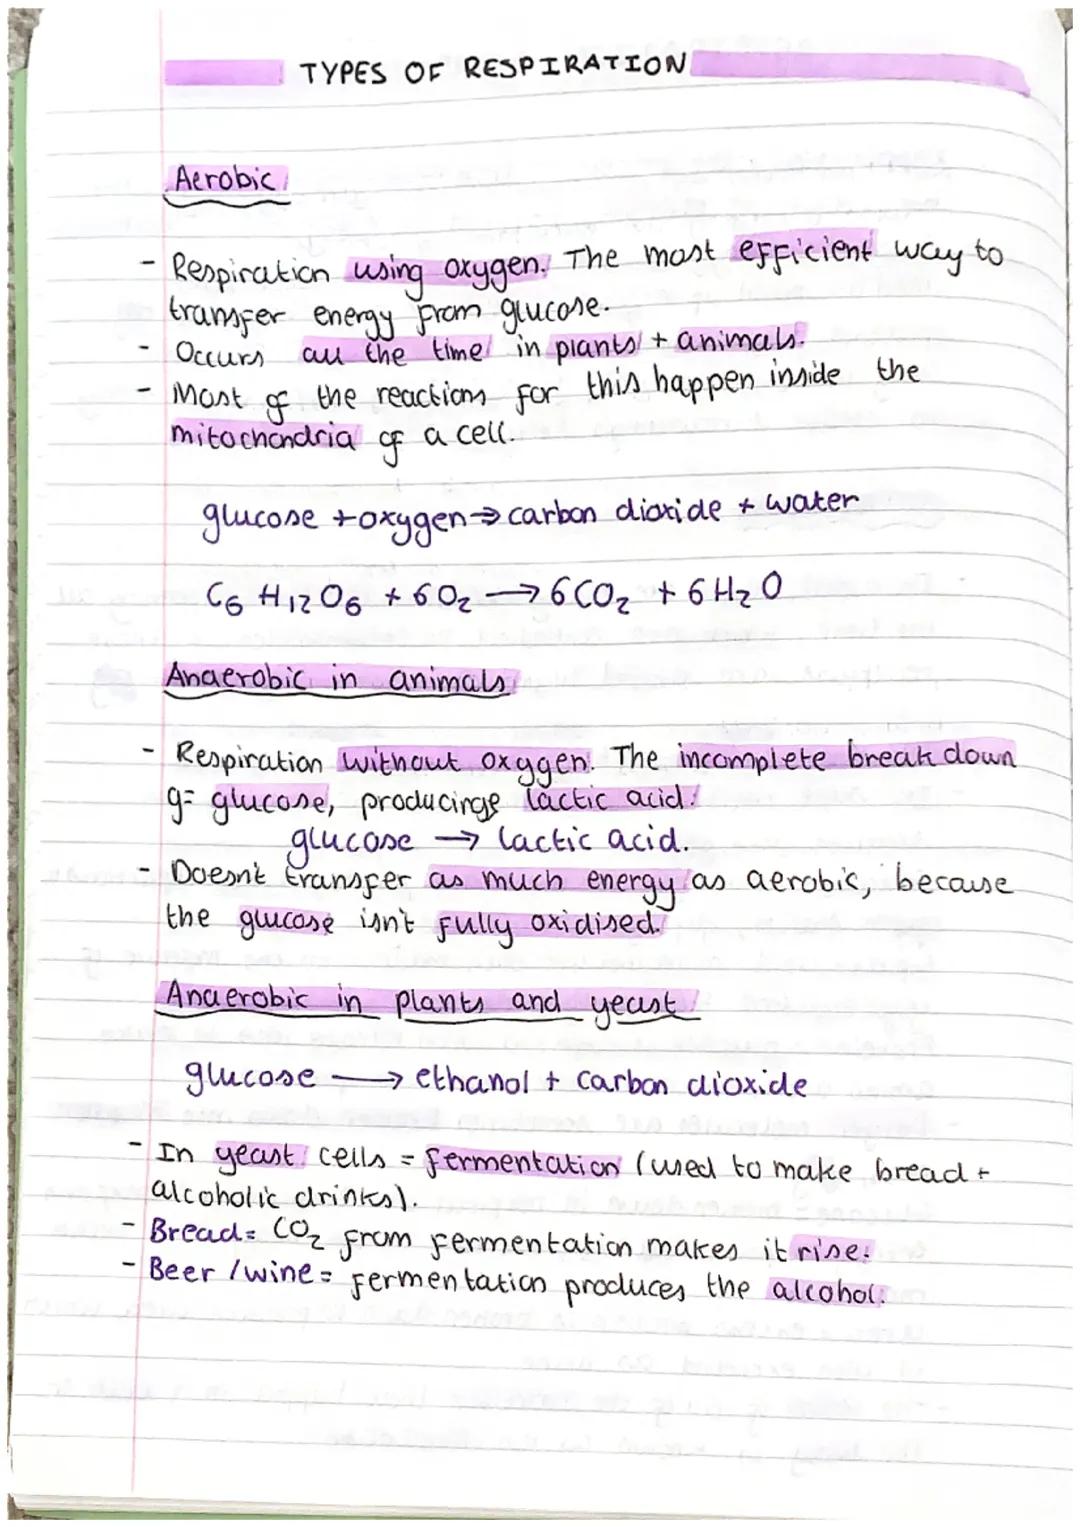 TYPES OF RESPIRATION
Aerobic
- Respiration using oxygen. The most efficient way to
transfer energy from glucose.
- Occurs all the time in plants + animals.
- Most of the reactions for this happen inside the
mitochondria of a cell.
glucose + oxygen → carbon dioxide + water
C6 H12 O6 + 6O2 → 6CO2 + 6H2O
Anaerobic in animals
- Respiration without oxygen. The incomplete break down
of glucose, producing lactic acid.
glucose → lactic acid.
- Doesn't transfer as much energy as aerobic, because
the glucose isn't fully oxidised.
Anaerobic in plants and yeast
glucose → ethanol + carbon dioxide
- In yeast cells = fermentation (used to make bread +
alcoholic drinks).
- Bread = CO2 from fermentation makes it rise.
- Beer / wine = fermentation produces the alcohol.